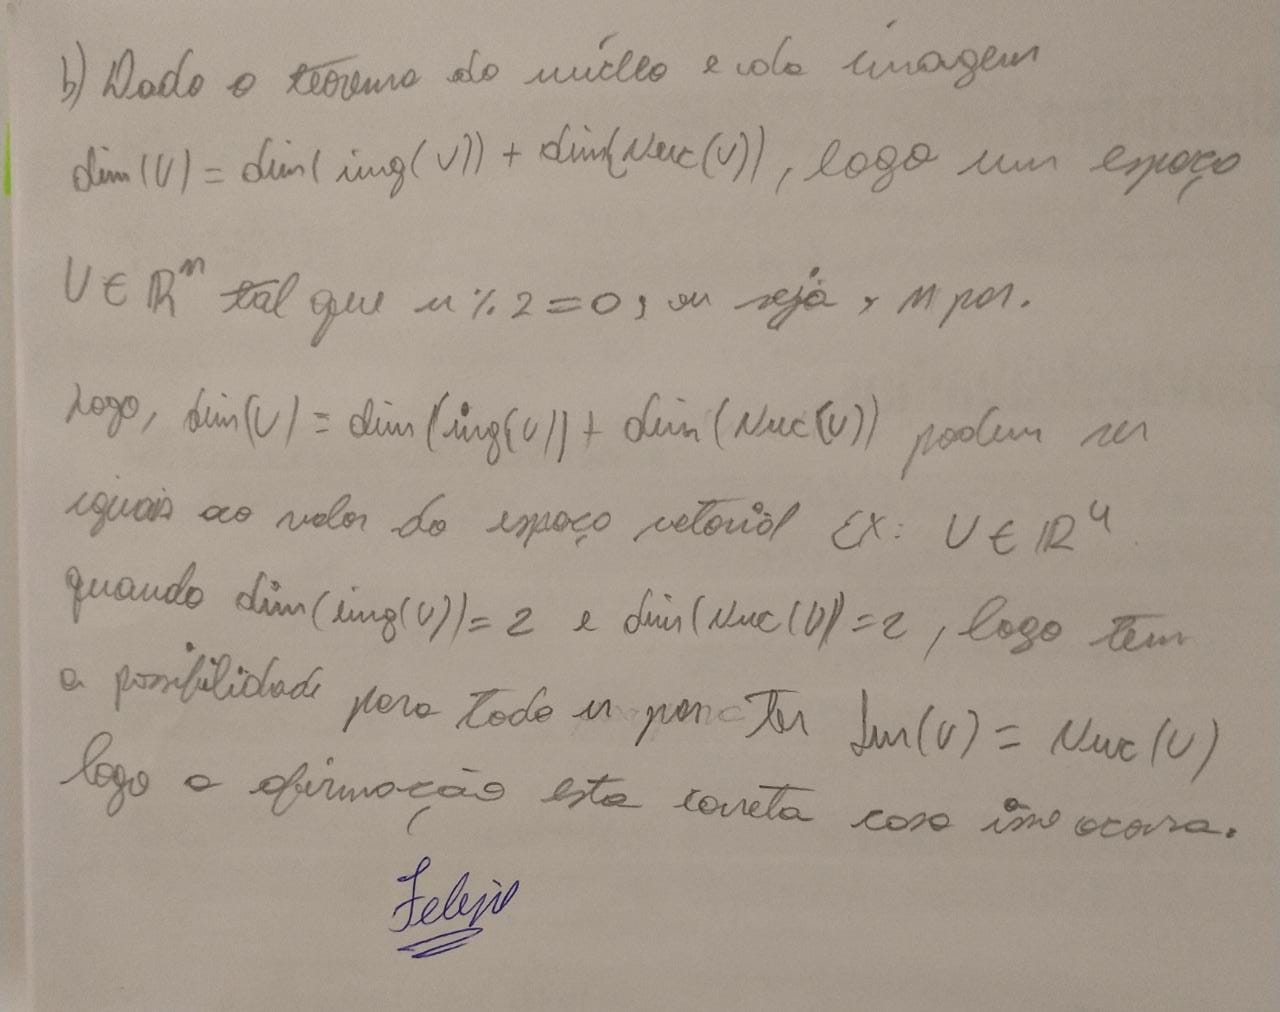 b) Dado o teorema do núcleo e da imagem
dim(U) = dim(img(U)) + dim(Nuc(U)), logo um espaço
U ∈ ℝⁿ tal que n % 2 = 0, ou seja, n par.
Logo, dim(U) = dim(img(U)) + dim(Nuc(U)) podem ser
iguais ao valor do espaço vetorial EX: U ∈ ℝ⁴
quando dim(img(U)) = 2 e dim(Nuc(U)) = 2, logo tem
a possibilidade para todo n par Ter Im(U) = Nuc(U)
logo a afirmação esta correta caso isso ocorra.
Felipe